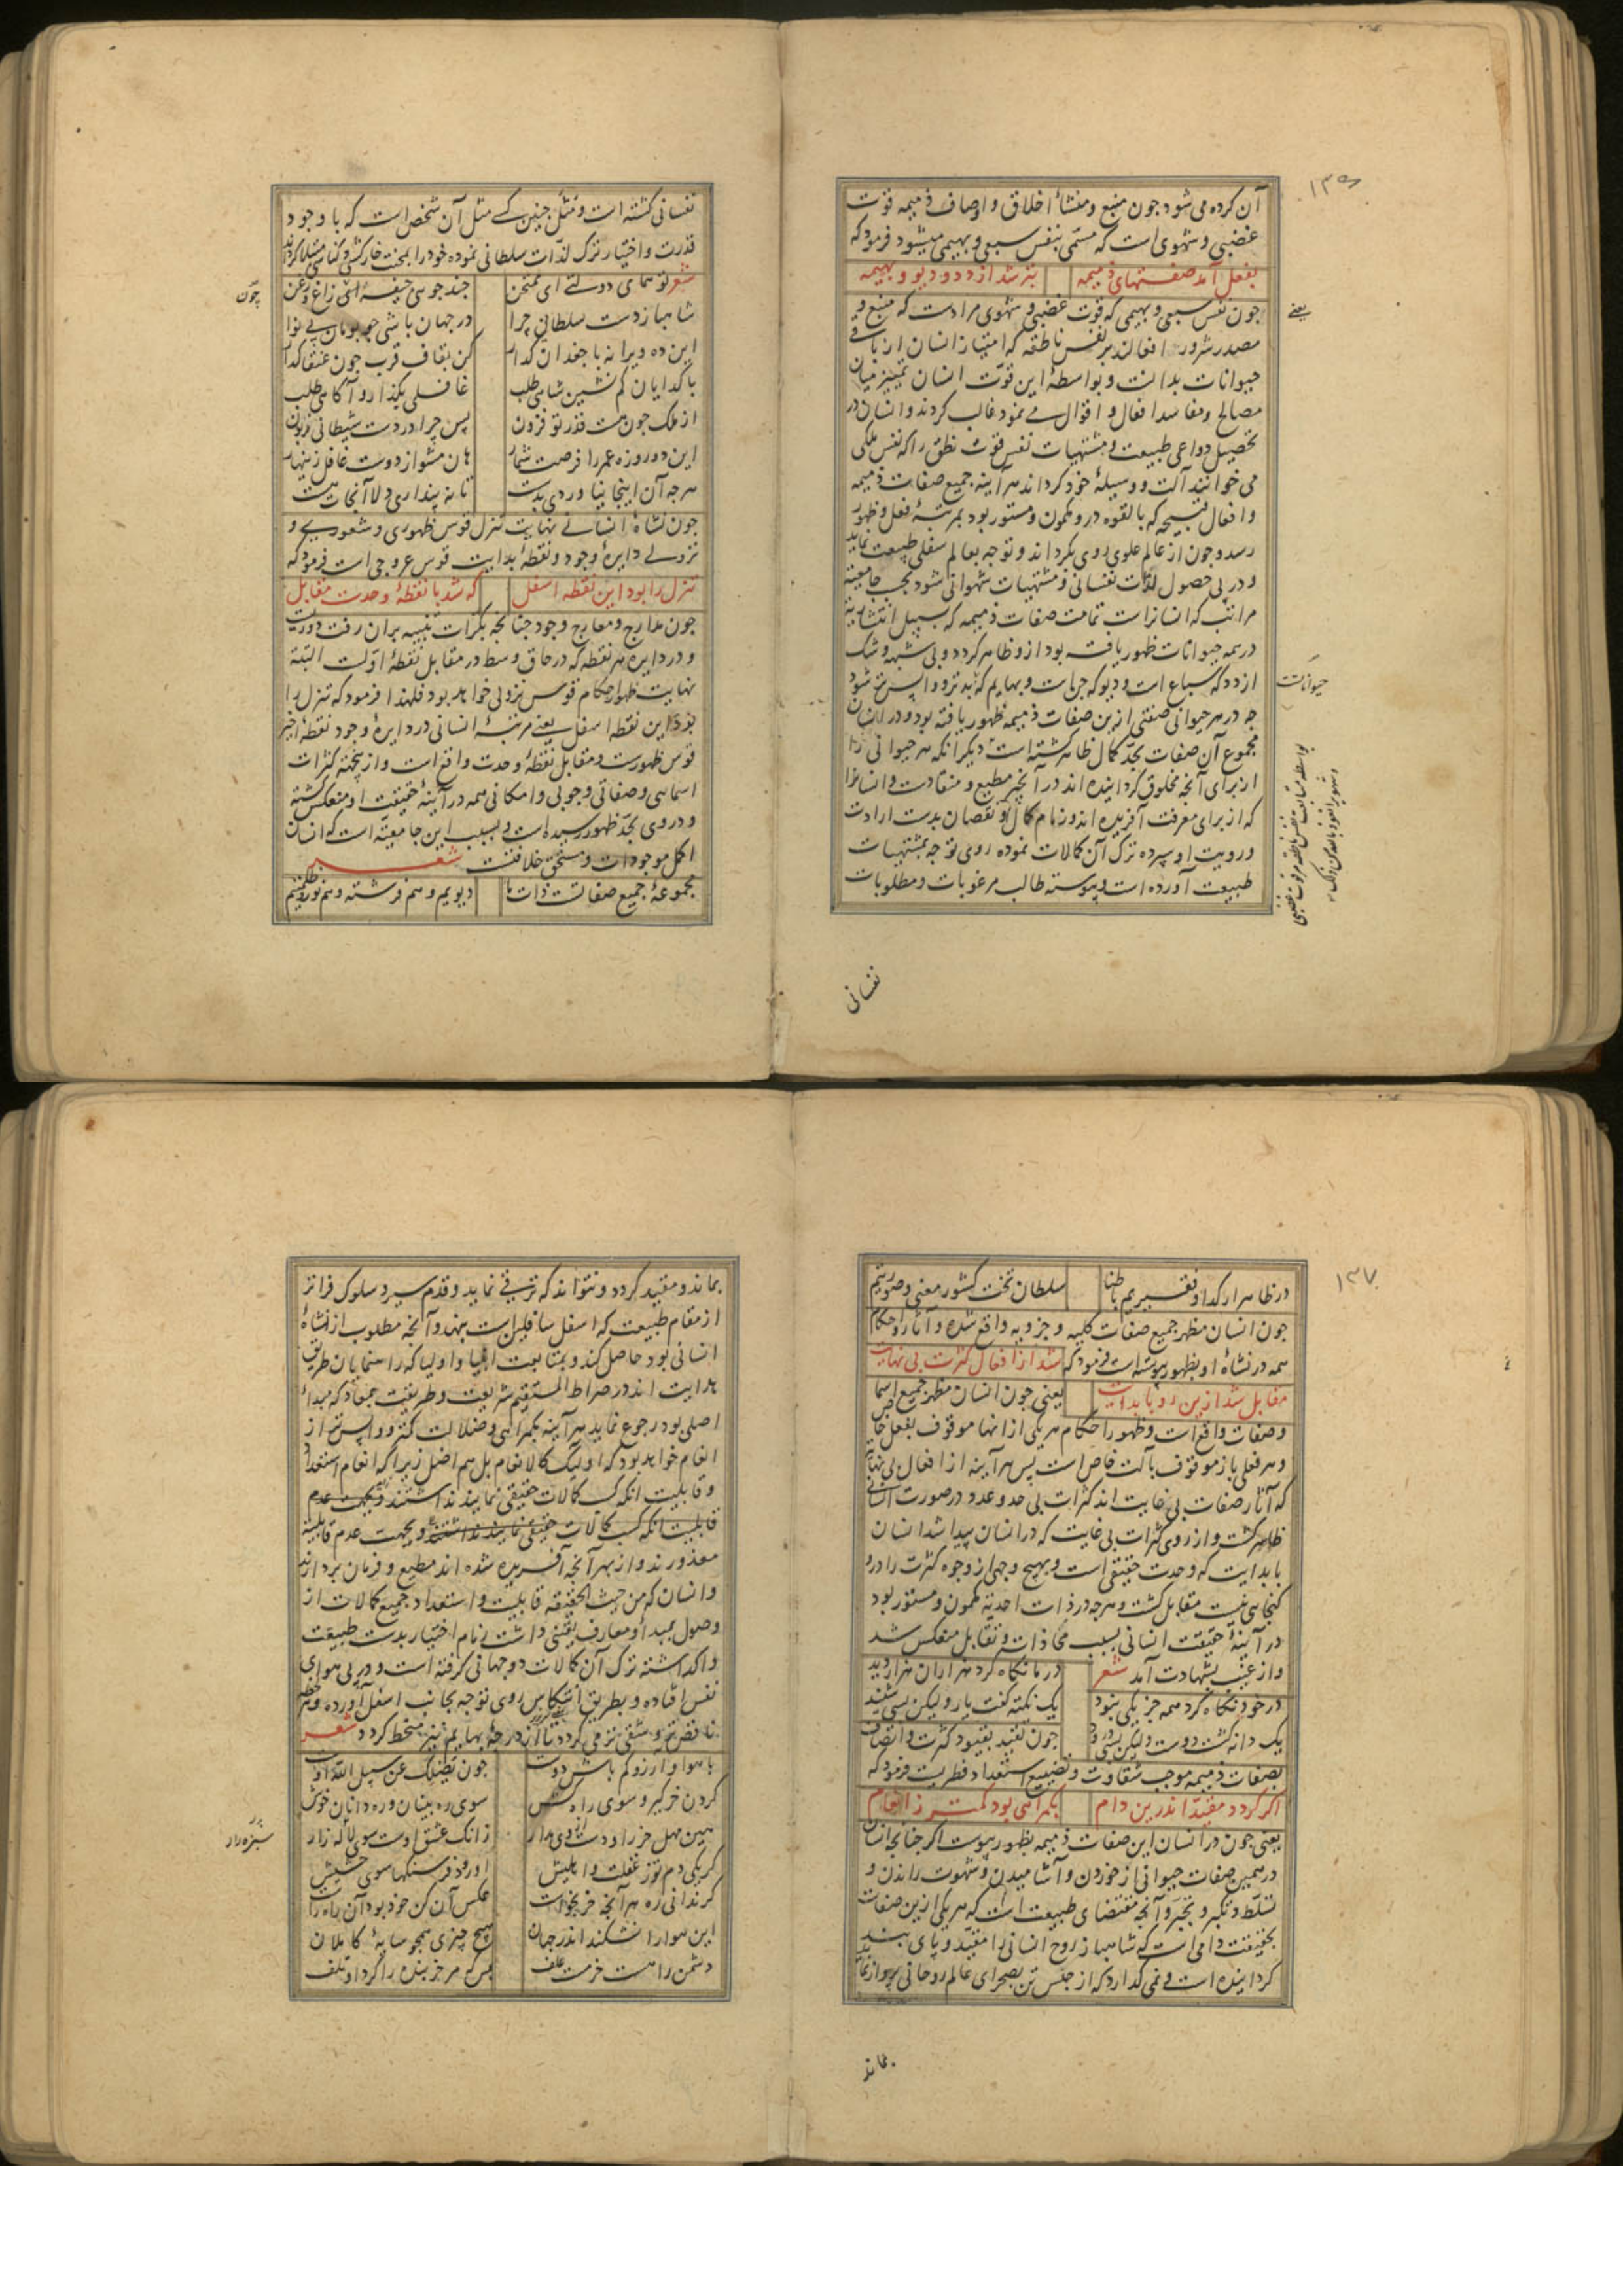 ۱۳۶
آن کرده می شود چون منبع و منشأ اخلاق و اوصاف ذمیمه قوت
غضبی و شهوی است که مسمّی بنفس سبعی و بهیمی میشود فرمود که
بفعل آمد صفتهای ذمیمه بتر شد از دد و دیو و بهیمه
چون نفس سبعی و بهیمی که قوت غضبی و شهوی مرادست که منبع و
مصدر شرور افعالند بر نفس ناطقه که امتیاز انسان از باقی
حیوانات بدانست و بواسطۀ این قوّت انسان تمییز میان
مصالح و مفاسد افعال و اقوال می نمود غالب کردند و انسان در
تحصیل دواعی طبیعت و مشتهیات نفس قوت نطق را که نفس ملکی
می خوانند آلت و وسیلۀ خود کرداند هرآینه جمیع صفات ذمیمه
و افعال قبیحه که بالقوه درو مکمون و مستور بود بمرتبۀ فعل و ظهور
رسد و چون از عالم علوی روی بکرداند و توجه بعالم سفلی طبیعت نماید
و در پی حصول لذّات نفسانی و مشتهیات شهوانی شود بحسب جامعیّت
مراتب که انسانراست تمامت صفات ذمیمه که بسبیل انتشار
در همه حیوانات ظهور یافته بود ازو ظاهر کردد و بی شبهه و شک
از دد که سباع است و دیو که جن است و بهایم که بدترو واپس تر شود
چه در هر حیوانی صفتی ازین صفات ذمیمه ظهور یافته بود و در انسان
مجموع آن صفات بحدّ کمال ظاهر کشته است دیکر آنکه هر حیوانی را
از برای آنچه مخلوق کردانیده اند در آنچیز مطیع و منقادست و انسانرا
که از برای معرفت آفریده اند و زمام کمال و نقصان بدست ارادت
و رویت او سپرده ترک آن کمالات نموده روی توجه بمشتهیات
طبیعت آورده است و پیوسته طالب مرغوبات و مطلوبات
یعنی
حیوانات
بواسطه متابعت نفس ناطقه مر قوت غضبی
نفسانی
نفسانی کشته است و مثل چنین کسی مثل آن شخص است که با وجود
قدرت و اختیار ترک لذّات سلطانی نموده خود را بمحنت خارکشی و کناسی مبتلا کرداند
شعر تو همای دولتی ای ممتحن چند جوئی جیفۀ این زاغ و زغن
شاهباز دست سلطانی چرا در جهان باشی چو بومان بی نوا
این ده ویرانه با جغدان کذار کن بقاف قرب چون عنقا کذار
با کدایان کم نشین شاهی طلب غافلی بکذار و آکاهی طلب
از ملک چون هست قدر تو فزون پس چرا در دست شیطانی زبون
این دو روزه عمر را فرصت شمار هان مشو از دوست غافل زینهار
هرچه آن اینجا نیاوردی بدست تا نه پنداری دلا آنجات هست
چون نشاۀ انسانی نهایت تنزل قوس ظهوری و شعوری و
نزولی دایرۀ وجود و نقطۀ بدایت قوس عروجی است فرمود که
تنزل را بود این نقطه اسفل که شد با نقطۀ وحدت مقابل
چون مدارج و معارج وجود چنانچه بکرات تنبیه بران رفت دوریست
و در دایره هر نقطه که در حاق وسط در مقابل نقطۀ اوّلست البته
نهایت ظهور احکام قوس نزولی خواهد بود فلهذا فرمود که تنزل را
بود این نقطه اسفل یعنی مرتبۀ انسانی در دایرۀ وجود نقطۀ اخیر
قوس ظهورست و مقابل نقطۀ وحدت واقع است و ازینجهة کثرات
اسمایی و صفاتی وجوبی و امکانی همه در آینۀ حقیقت او منعکس کشته
و در وی بحدّ ظهور رسیده است و بسبب این جامعیّت است که انسان
اکمل موجودات و مستحق خلافتست شعر
مجموعۀ جمیع صفاتست ذات ما دیویم و هم فرشته و هم نور و ظلمتیم
چون
۱۳۷
در ظاهر ار کدا و فقیریم باطنا سلطان تخت کشور معنی و صورتیم
چون انسان مظهر جمیع صفات کلیه و جزویه واقع شده و آثار و احکام
همه در نشاۀ او بظهور پیوسته است فرمود که شد از افعال کثرت بی نهایت
مقابل شد ازین رو با بدایت یعنی چون انسان مظهر جمیع اسما
و صفات واقع است و ظهور احکام هر یکی از انها موقوف بفعل خاص
و هر فعلی باز موقوف بآلت خاص است پس هرآینه از افعال بی نهایت
که آثار صفات بی غایت اند کثرات بی حد و عدد در صورت انسانی
ظاهر کشت و از روی کثرات بی غایت که در انسان پیدا شد انسان
با بدایت که وحدت حقیقی است و بهیچ وجهی از وجوه کثرت را درو
کنجایی نیست مقابل کشت و هرچه در ذات احدیة مکمون و مستور بود
در آینۀ حقیقت انسانی بسبب محاذات و تقابل منعکس شد
و از غیب بشهادت آمد شعر در ما نکاه کرد هزاران هزار دید
در خود نکاه کرد همه جز یکی نبود یک نکته کفت یار ولیکن بسی شنید
یک دانه کشت دوست ولیکن بسی درود چون تقید بقیود کثرت و اتصاف
بصفات ذمیمه موجب شقاوت و تضییع استعداد فطریست فرمود که
اکر کردد مقیّد اندرین دام بکمراهی بود کمتر ز انعام
یعنی چون در انسان این صفات ذمیمه بظهور پیوست اکر چنانچه انسان
در همین صفات حیوانی از خوردن و آشامیدن و شهوت راندن و
تسلّط و تکبر و تجبّر و آنچه مقتضای طبیعت است که هر یکی ازین صفات
بحقیقت دامی است که شاهباز روح انسانی را مقیّد و پای بند
کردانیده است و نمی کذارد که از حبس تن بصحرای عالم روحانی پرواز نماید
بماند
بماند و مقید کردد و نتواند که ترقی نماید و قدم سیر و سلوک فراتر
از مقام طبیعت که اسفل سافلین است بنهد و آنچه مطلوب از نشاۀ
انسانی بود حاصل کند و بمتابعت انبیا و اولیا که راهنمایان طریق
هدایت اند در صراط المستقیم شریعت و طریقت بمعاد که مبدأ
اصلی بود رجوع نماید هرآینه بکمراهی و ضلالت کمتر و واپس تر از
انعام خواهد بود که اولیک کالانعام بل هم اضل زیرا که انعام استعداد
و قابلیت آنکه کسب کمالات حقیقی نمایند نداشتند و بجهت عدم
قابلیت آنکه کسب کمالات حقیقی نمایند نداشتند و بجهت عدم قابلیّة
معذورند و از بهر آنچه آفریده شده اند مطیع و فرمان بردارند
و انسان که من حیث الحقیقه قابلیت و استعداد جمیع کمالات از
وصول بمبدأ و معارف یقینی داشت زمام اختیار بدست طبیعت
واکذاشته ترک آن کمالات دو جهانی کرفته است و در پی هوای
نفس افتاده و بطریق انتکاس روی توجه بجانب اسفل آورده و هر لحظه
ناقص تر و شقی تر می کردد تا از درجۀ بهایم نیز منحط کردد شعر
با هوا و آرزو کم باش دوست چون یضلک عن سبیل الله اوست
کردن خر کیر و سوی راه کش سوی ره بینان و ره دانان خوش
هین مهل خر را و دست از وی مدار زانک عشق اوست سوی لاله زار
کر یکی دم تو ز غفلت واهلیش او رود فرسنکها سوی حشیش
کر ندانی ره هر آنچه خر بخواست عکس آن کن خود بود آن راه راست
این هوا را نشکند اندر جهان هیچ چیزی همچو سایۀ کاملان
دشمن راهست خر مست علف بس که خر بنده را کرد او تلف
سبزه زار